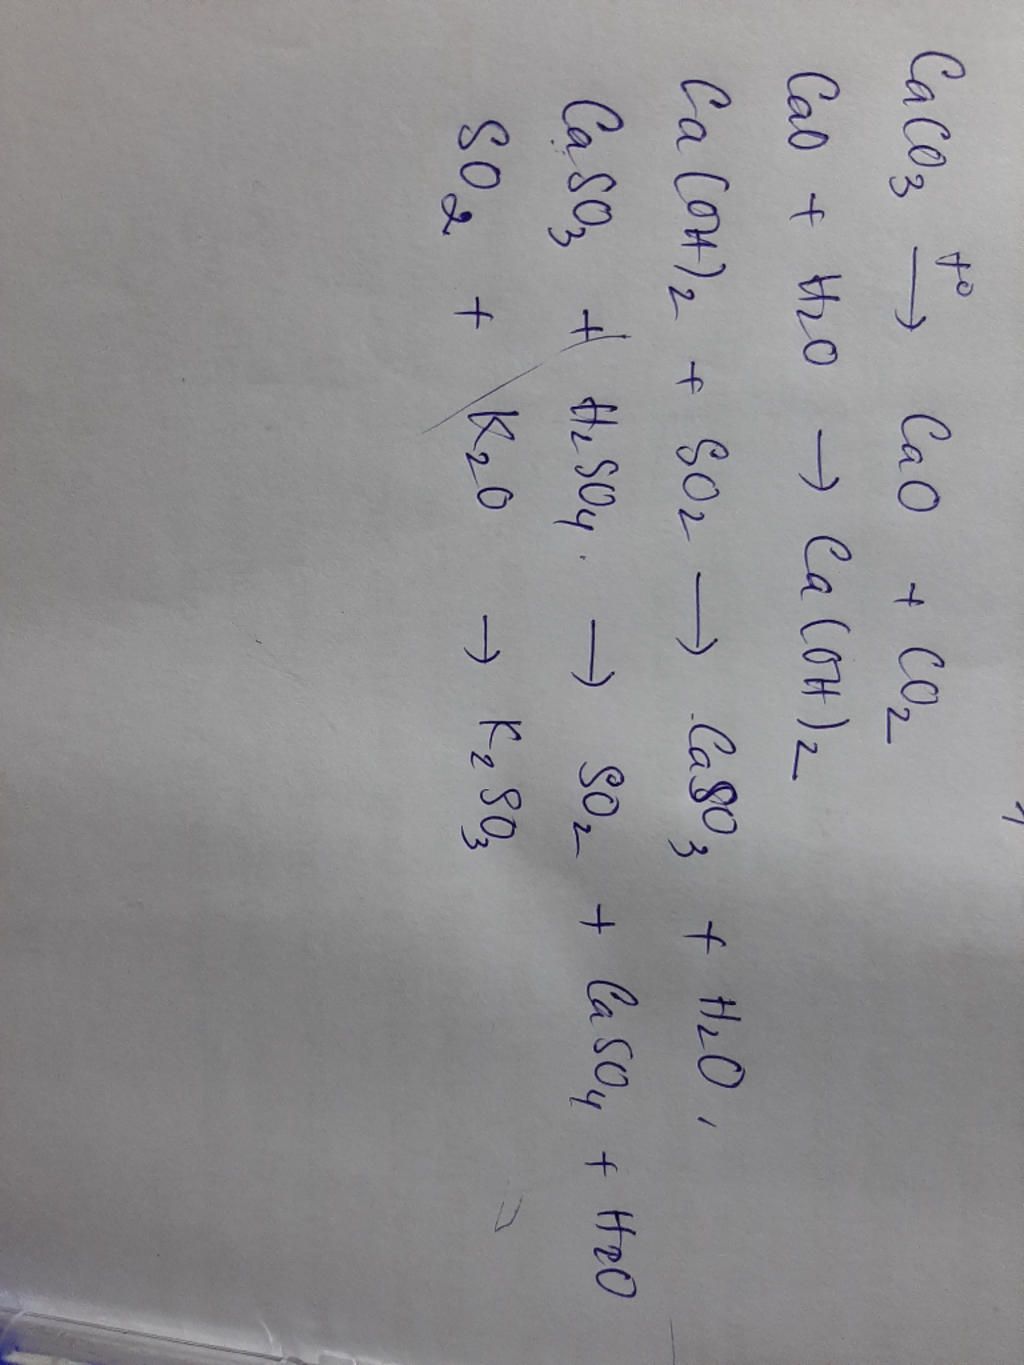 CaCO₃ →(t°) CaO + CO₂
CaO + H₂O → Ca(OH)₂
Ca(OH)₂ + SO₂ → CaSO₃ + H₂O,
CaSO₃ + H₂SO₄. → SO₂ + CaSO₄ + H₂O
SO₂ + K₂O → K₂SO₃